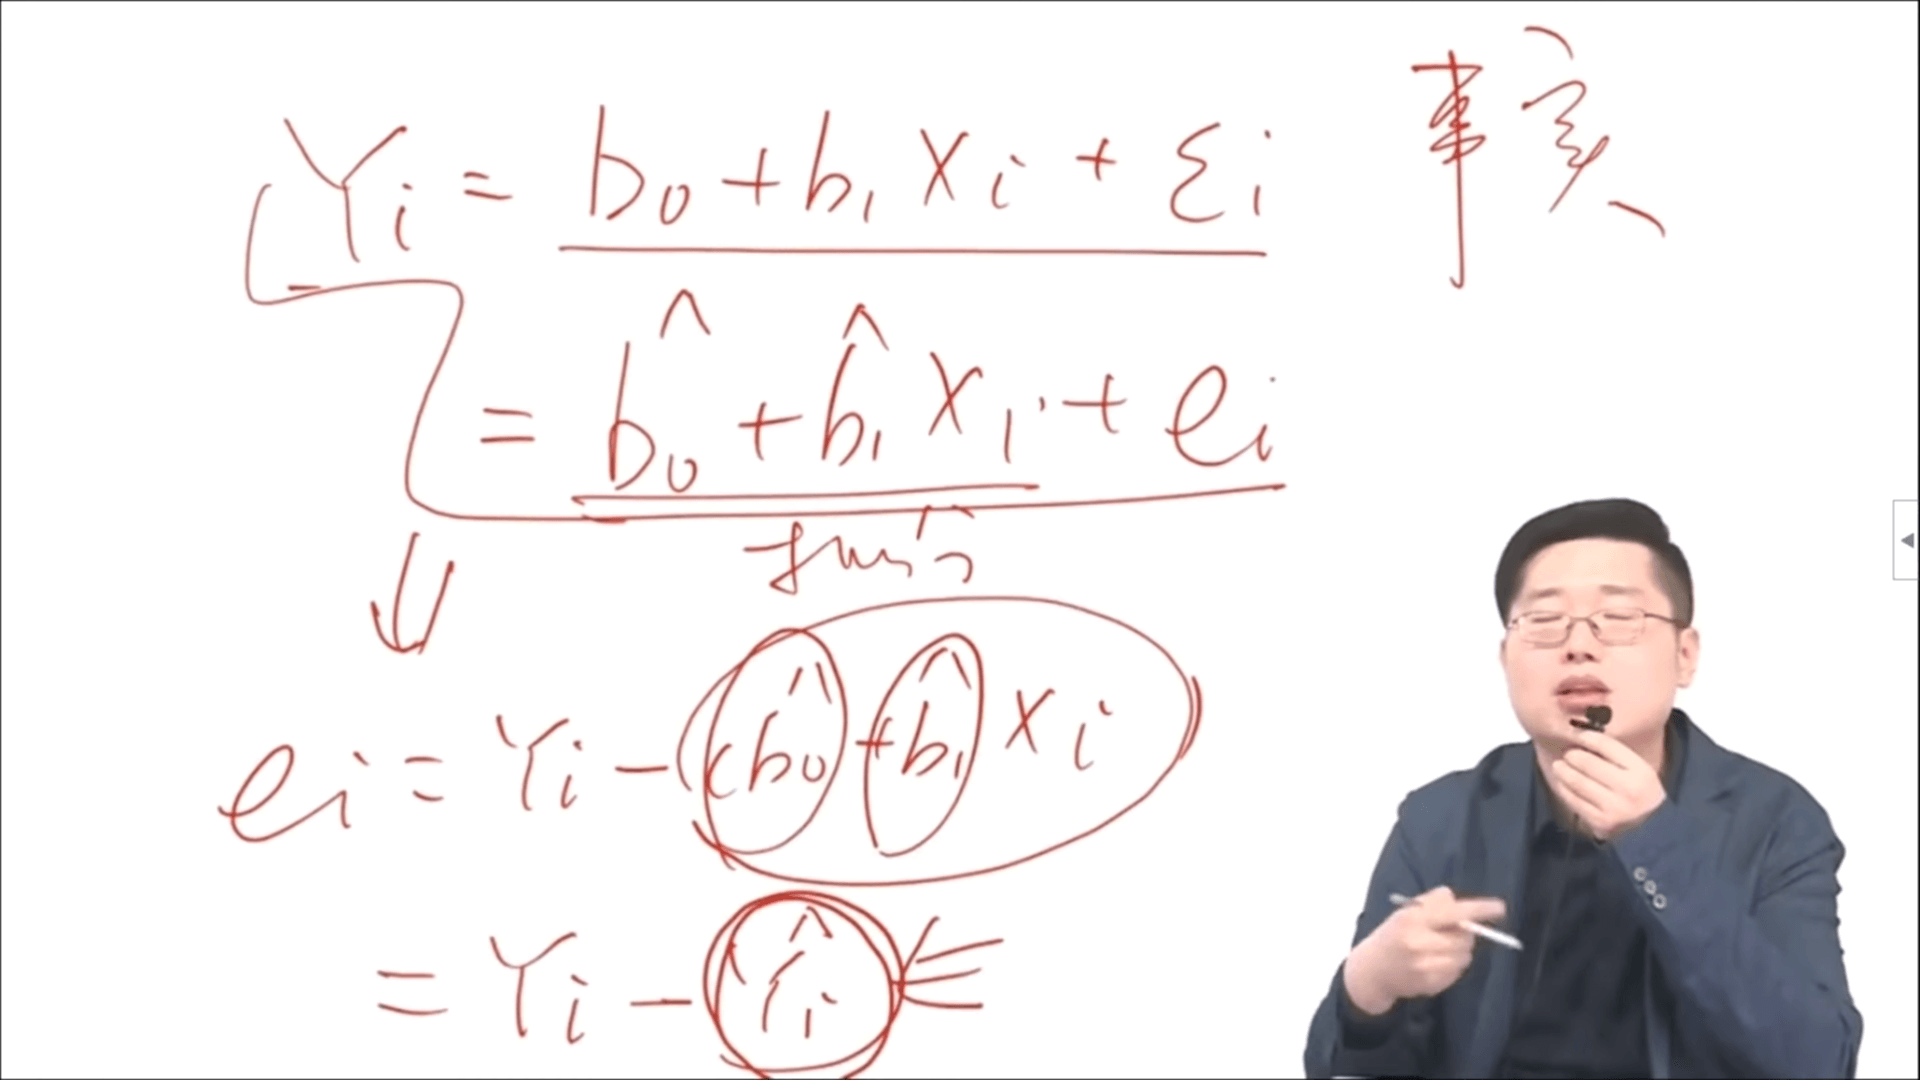 Yi = b0 + b1 Xi + εi
= b̂0 + b̂1 Xi + ei
ei = Yi - (b̂0 + b̂1 Xi)
= Yi - Ŷi